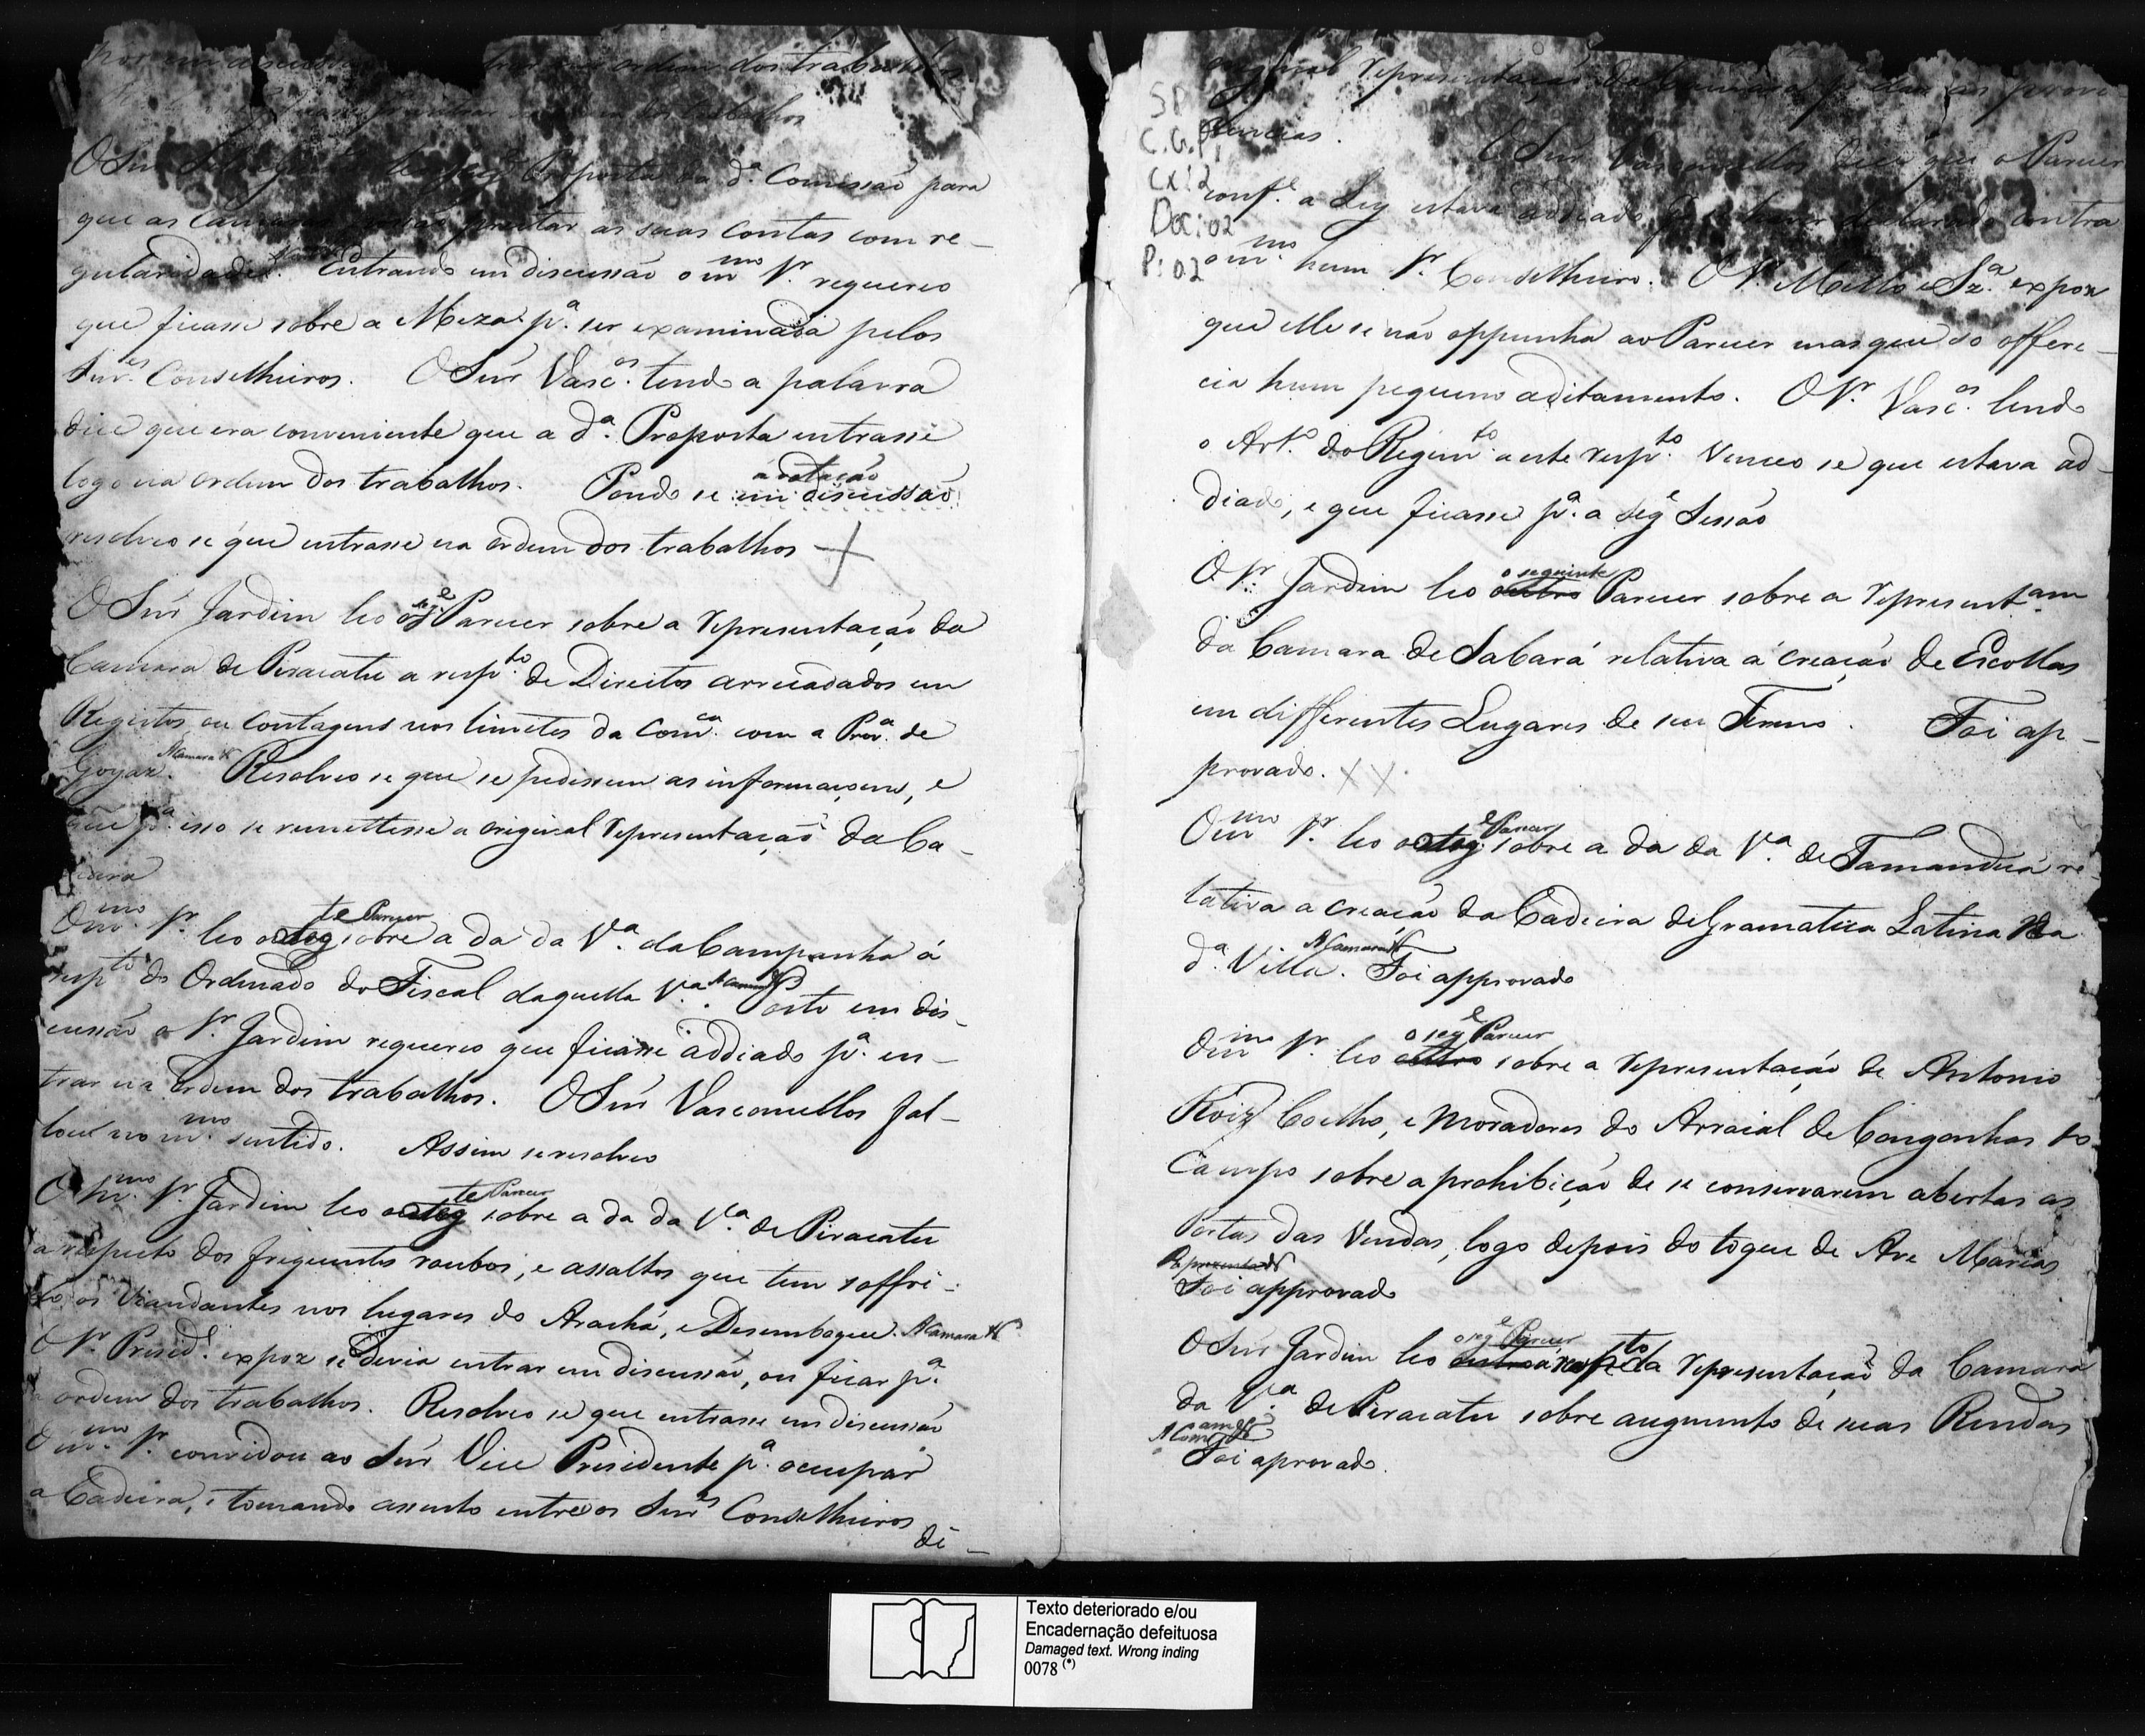 em discussão ordem dos trabalhos
trabalhos
O Snr Proposta da d.ª Comissão para
que as Camaras prestar as suas Contas com re-
gularidade. Entrando em discussão o m.mo Sr. requereo
que ficasse sobre a Meza p.ª ser examinada pelos
Snr.es Conselheiros. O Snr Vasc.os tendo a palavra
dice que era conveniente que a d.ª Proposta entrasse
logo na ordem dos trabalhos. Pondo se em discussão
a votação
resolveo se que entrasse na ordem dos trabalhos
O Snr Jardim leo o seg.e Parecer sobre a representação da
Camara de Piracatu a resp.to de Direitos arrecadados em
Registos ou Contagens nos limites da Com.ca com a Prov.ª de
Goyaz. A Camara &c Resolveo se que se pedissem as informaçoens, e
que p.ª isso se remettesse a original representação da Ca-
mara
O m.mo Sr. leo o seg.te Parecer sobre a da da V.ª da Campanha á
resp.to do Ordenado do Fiscal daquella V.ª A Camara &c Posto em dis-
cussão o Sr. Jardim requereo que ficasse addiado p.ª en-
trar na ordem dos trabalhos. O Snr Vasconcellos fal-
lou no m.mo sentido. Assim se resolveo
O m.mo Sr. Jardim leo o seg.te Parecer sobre a da da V.ª de Piracatu
a respeito dos frequentes roubos, e assaltos que tem soffri-
do os Viandantes nos lugares do Arachá, e Desemboque. A Camara &c
O Sr. Presid.e expoz se devia entrar em discussão, ou ficar p.ª
ordem dos trabalhos. Resolveo se que entrasse em discussão
O m.mo Sr. convidou ao Snr Vice Presidente p.ª occupar
a Cadeira, e tomando assento entre os Snr.es Conselheiros
di-
SP
C.G.P.
Cx: 2
Doc: 02
P: 02
original representação da Camara provi
dencias. O Snr Vasconcellos dice que o Parecer
conf.e a Ley estava addiado haver declarado contra
o m.mo hum Sr. Conselheiro. O Sr. Mello e Sz.ª expoz
que elle se não oppunha ao Parecer mas que so offere-
cia hum pequeno aditamento. O Sr. Vasc.os lendo
o Art.o do Regim.to a este resp.to Venceo se que estava ad-
diado, e que ficasse p.ª a seg.e Sessão
O Sr. Jardim leo outro o seguinte Parecer sobre a representam
da Camara de Sabará relativa á creação de Escollas
em differentes Lugares de seu Termo. Foi ap-
provado. XX
O m.mo Sr. leo o seg.e Parecer sobre a da da V.ª de Tamanduá re-
lativa a creação da Cadeira de Gramatica Latina na
d.ª Villa. A Camara &c Foi approvado
O m.mo Sr. leo outro o seg.e Parecer sobre a representação de Antonio
Roiz Coelho, e Moradores do Arraial de Congonhas do
Campo sobre a prohibição de se conservarem abertas as
Portas das Vendas, logo depois do toque de Ave Marias
Foi approvado
O Snr Jardim leo outro o seg.e Parecer a resp.to da representação da Camara
da V.ª de Piracatu sobre augmento de suas Rendas
A Camara &c
Foi aprovado.
Texto deteriorado e/ou
Encadernação defeituosa
Damaged text. Wrong inding
0078 (*)